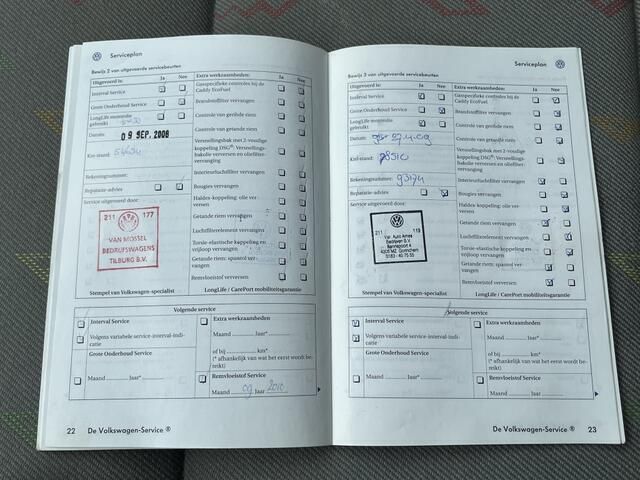 Serviceplan
Bewijs 2 van uitgevoerde servicebeurten
Uitgevoerd is: Ja Nee
Interval Service
Grote Onderhoud Service
LongLife motorolie gebruikt
Datum: 09 SEP. 2008
Km-stand:
Rekeningnummer:
Reparatie-advies
Service uitgevoerd door:
211 177
VAN MOSSEL
BEDRIJFSWAGENS
TILBURG B.V.
Stempel van Volkswagen-specialist
Extra werkzaamheden: Ja Nee
Gasspecifieke controles bij de
Caddy EcoFuel
Brandstoffilter vervangen
Controle van geribde riem
Controle van getande riem
Versnellingsbak met 2-voudige
koppeling DSG®: Versnellings-
bakolie verversen en oliefilter
vervangen
Interieurluchtfilter vervangen
Bougies vervangen
Haldex-koppeling: olie ver-
versen
Getande riem vervangen
Luchtfilterelement vervangen
Torsie-elastische koppeling en
vrijloop vervangen
Getande riem: spanrol ver-
vangen
Remvloeistof verversen
LongLife / CarePort mobiliteitsgarantie
Volgende service
Interval Service
Volgens variabele service-interval-indi-
catie
Grote Onderhoud Service
Maand Jaar*
Extra werkzaamheden
Maand Jaar*
of bij km*
(* afhankelijk van wat het eerst wordt be-
reikt)
Remvloeistof Service
Maand 09 Jaar 2010
22 De Volkswagen-Service ®
Serviceplan
Bewijs 3 van uitgevoerde servicebeurten
Uitgevoerd is: Ja Nee
Interval Service
Grote Onderhoud Service
LongLife motorolie
gebruikt
Datum: 27.4.09
Km-stand: 78510
Rekeningnummer: 93174
Reparatie-advies
Service uitgevoerd door:
211 113
Van Auto Ames
Bedrijven B.V.
Stempel van Volkswagen-specialist
Extra werkzaamheden: Ja Nee
Gasspecifieke controles bij de
Caddy EcoFuel
Brandstoffilter vervangen
Controle van geribde riem
Controle van getande riem
Versnellingsbak met 2-voudige
koppeling DSG®: Versnellings-
bakolie verversen en oliefilter
vervangen
Interieurluchtfilter vervangen
Bougies vervangen
Haldex-koppeling: olie ver-
versen
Getande riem vervangen
Luchtfilterelement vervangen
Torsie-elastische koppeling en
vrijloop vervangen
Getande riem: spanrol ver-
vangen
Remvloeistof verversen
LongLife / CarePort mobiliteitsgarantie
Volgende service
Interval Service
Volgens variabele service-interval-indi-
catie
Grote Onderhoud Service
Maand Jaar*
Extra werkzaamheden
Maand Jaar*
of bij km*
(* afhankelijk van wat het eerst wordt be-
reikt)
Remvloeistof Service
Maand Jaar
De Volkswagen-Service ® 23